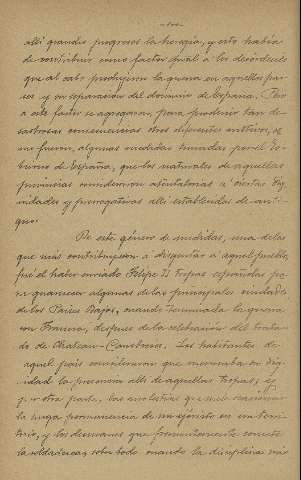 allí grandes progresos la heregía, y esto había
de contribuir como factor igual á los desórdenes
que al cabo produjeron la guerra en aquellos paí-
ses y su separación del dominio de España. Pero
á este factor se agregaron, para producir tan de-
sastrosas consecuencias otros diferentes motivos, co-
mo fueron, algunas medidas tomadas por el Go-
bierno de España, que los naturales de aquellas
provincias consideraron atentatorias á ciertas dig-
nidades y prerrogativas allí establecidas de anti-
guo.
De este género de medidas, una de las
que más contribuyeron a disgustar á aquel pueblo,
fué el haber enviado Felipe II tropas españolas pa-
ra guarnecer algunas de las principales ciudades
de los Paises Bajos, cuando terminada la guerra
con Francia, despues de la celebración del trata-
do de Chateau-Cambresis. Los habitantes de
aquel país consideraron que mermaba su dig-
nidad la presencia allí de aquellas tropas, y
por otra parte, las molestias que suele ocasionar
la larga permanencia de un ejército en un terri-
torio, y los desmanes que frecuentemente comete
la soldadesca, sobre todo cuando la disciplina no